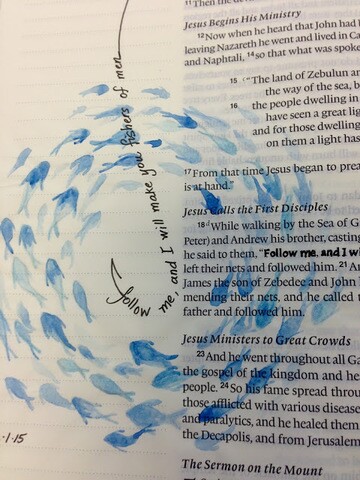 11 Then the de
Jesus Begins His Ministry
12 Now when he heard that John had
leaving Nazareth he went and lived in Ca
and Naphtali, 14 so that what was spoke
15 "The land of Zebulun a
the way of the sea, b
16 the people dwelling in
have seen a great lig
and for those dwelling
on them a light has
17 From that time Jesus began to prea
is at hand."
Jesus Calls the First Disciples
18 d While walking by the Sea of G
Peter) and Andrew his brother, casting
he said to them, "Follow me, and I wi
left their nets and followed him. 21 An
James the son of Zebedee and John
mending their nets, and he called t
father and followed him.
Jesus Ministers to Great Crowds
23 And he went throughout all Ga
the gospel of the kingdom and he
people. 24 So his fame spread throu
those afflicted with various disease
and paralytics, and he healed them
the Decapolis, and from Jerusalem
The Sermon on the Mount
follow me, and I will make you fishers of men
·1·15